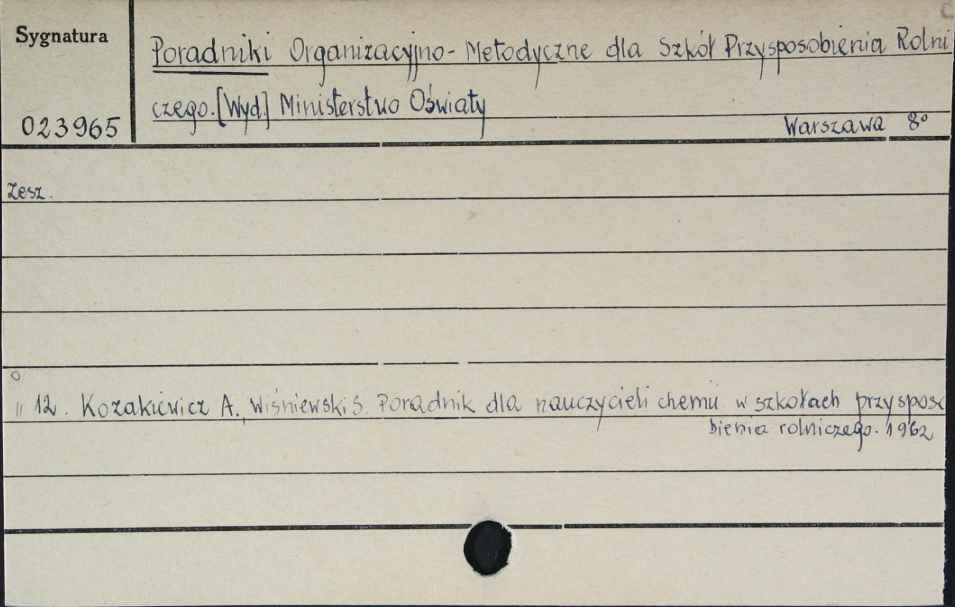 Sygnatura
Poradniki Organizacyjno-Metodyczne dla Szkół Przysposobienia Rolni
czego. [Wyd.] Ministerstwo Oświaty
023965
Warszawa 8°
Zesz.
" 12. Kozakiewicz A., Wiśniewski S. Poradnik dla nauczycieli chemii w szkołach przysposo
bienia rolniczego. 1962